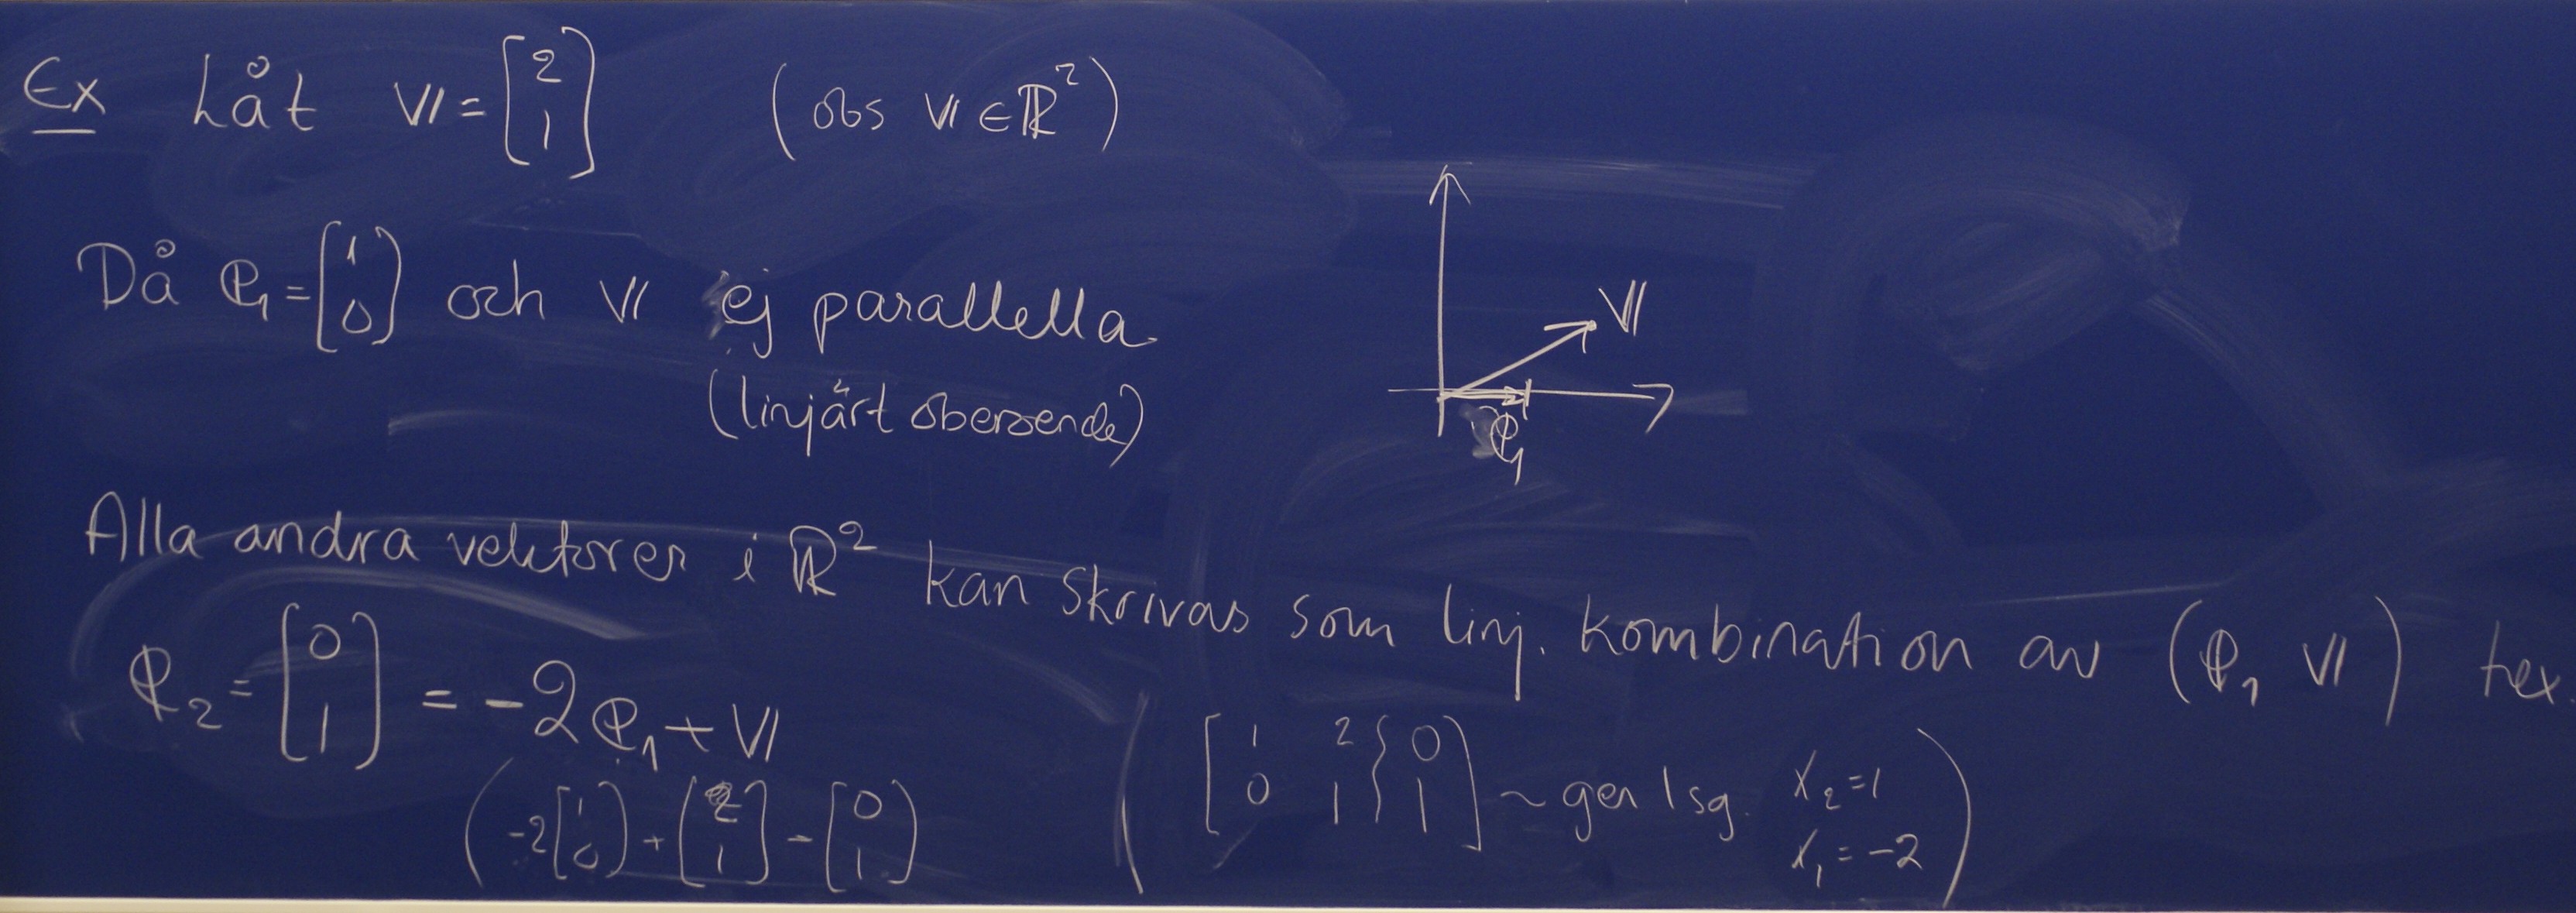 Ex Låt v = [2 1] (obs v ∈ ℝ²)
Då e₁ = [1 0] och v ej parallella
(linjärt oberoende)
v
e₁
Alla andra vektorer i ℝ² kan skrivas som linj. kombination av (e₁ v) tex.
e₂ = [0 1] = -2e₁ + v
(-2[1 0] + [2 1] - [0 1]
([1 2 | 0; 0 1 | 1] ~ ger lsg. x₂ = 1 x₁ = -2)